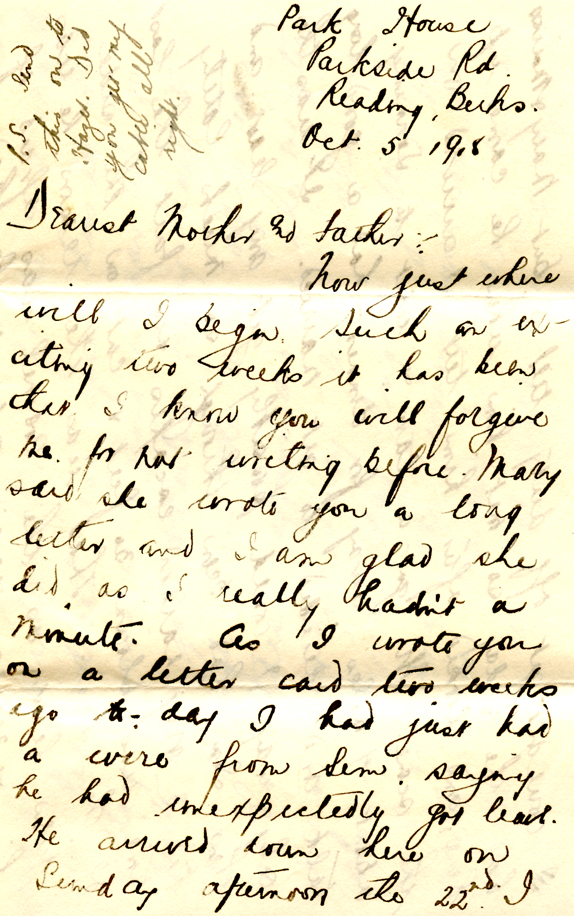 Park House
Parkside Rd.
Reading, Berks.
Oct. 5, 1918
P.S. Send
this on to
Did
you get my
cable all
right.
Dearest Mother and Father:-
Now just where
will I begin. Such an ex-
citing two weeks it has been
that I know you will forgive
me for not writing before. Mary
said she wrote you a long
letter and I am glad she
did as I really hadn't a
minute. As I wrote you
on a letter card two weeks
ago to-day I had just had
a wire from Sem. saying
he had unexpectedly got leave.
He arrived down here on
Sunday afternoon the 22nd. I